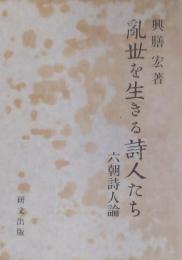 興膳 宏著
亂世を生きる詩人たち
六朝詩人論
研文出版